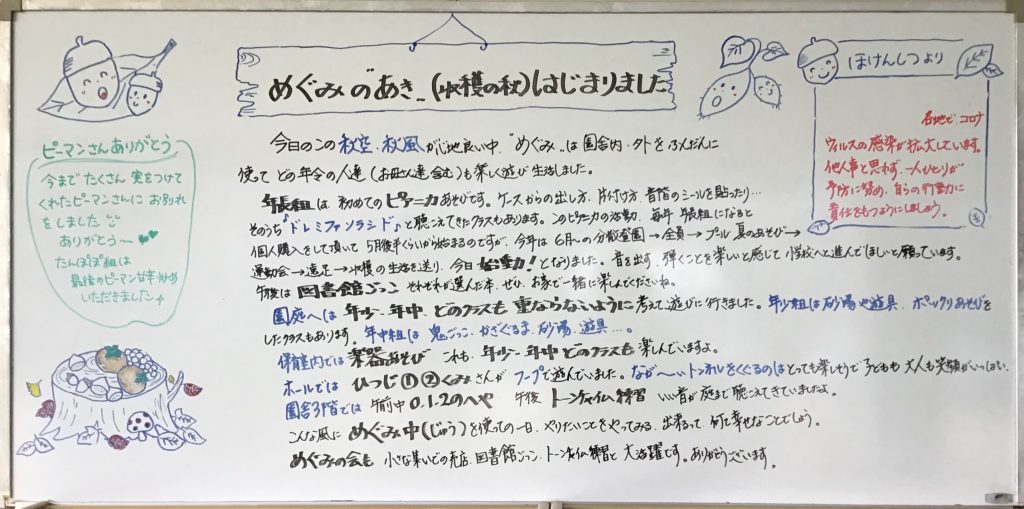 めぐみ"のあき〟(収穫の秋)はじまりました
今日のこの 秋空、秋風が心地良い中、"めぐみ〟は園舎内・外をふんだんに
使って どの年令の人達(お母さん達含む)も楽しく遊び生活しました。
年長組は 初めてのピアニカあそびです。ケースからの出し方、片付け方、音階のシールを貼ったり…
そのうち『ドレミファソラシド』♪と聴こえてきたクラスもあります。このピアニカの活動、毎年 年長組になると
個人購入をして頂いて 5月後半くらいから始まるのですが、今年は 6月〜の分散登園→全員→プール 夏のあそび→
運動会→遠足→収穫の生活を送り、今日 始動!となりました。音を出す、弾くことを楽しいと感じて 小学校へと進んでほしいと願っています。
午後は 図書館ごっこ それぞれが選んだ本、ぜひ、お家で一緒に楽しんでくださいね。
園庭へは 年少、年中、どのクラスも 重ならないように考えて、遊びに行きました。年少組は砂場や遊具、ポックリあそびを
したクラスもあります。年中組は 鬼ごっこ、かざぐるま、砂場、遊具…。
保育室内では 楽器あそび これも、年少〜年中 どのクラスも 楽しんでいますよ。
ホールでは ひつじ①②ぐみさんが フープで遊んでいました。なが〜いトンネルをくぐるのはとっても楽しそうで 子どもも 大人も笑顔がいっぱい。
園舎3階では 午前中 0.1.2のへや 午後 トーンチャイム練習 いい音が庭まで聴こえてきていましたよ。
こんな風に めぐみ中(じゅう)を使っての一日、やりたいことをやってみる、出来るって 何て幸せなことでしょう。
めぐみの会も 小さな集いでの売店、図書館ごっこ、トーンチャイム練習と 大活躍です。ありがとうございます。
ピーマンさんありがとう
今まで たくさん 実をつけて
くれたピーマンさんに お別れ
をしました
ありがとう〜
たんぽぽ組は
最後のピーマン甘辛炒め
いただきました
ほけんしつより
各地で コロナ
ウィルスの感染が拡大しています。
他人事と思わず、一人ひとりが
予防に努め、自らの行動に
責任をもつようにしましょう。